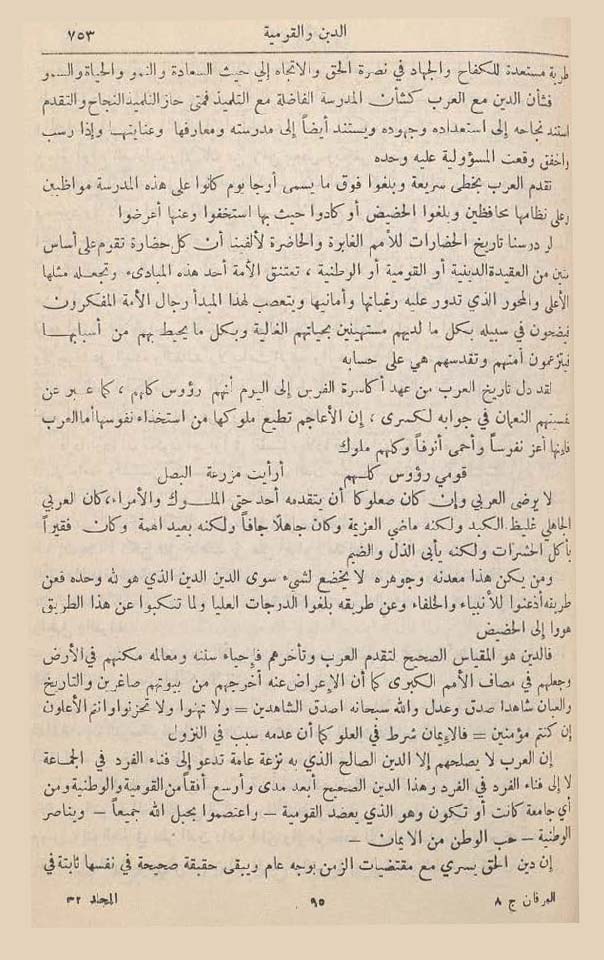 الدين والقومية ٧٥٣
طرية مستعدة للكفاح والجهاد في نصرة الحق والاتجاه إلى حيث السعادة والنمو والحياة والسمو
فشأن الدين مع العرب كشأن المدرسة الفاضلة مع التلميذ فمتى حاز التلميذ النجاح والتقدم
استند نجاحه إلى استعداده وجهوده ويستند أيضاً إلى مدرسته ومعارفها وعنايتها وإذا رسب
وأخفق وقعت المسؤولية عليه وحده
تقدم العرب بخطى سريعة وبلغوا فوق ما يسمى أوجا يوم كانوا على هذه المدرسة مواظبين
وعلى نظامها محافظين وبلغوا الحضيض أو كادوا حيث بها استخفوا وعنها أعرضوا
لو درسنا تاريخ الحضارات للأمم الغابرة والحاضرة لألفينا أن كل حضارة تقوم على أساس
متين من العقيدة الدينية أو القومية أو الوطنية ، تعتنق الأمة أحد هذه المبادىء وتجعله مثلها
الأعلى والمحور الذي تدور عليه رغباتها وأمانيها ويتعصب لهذا المبدأ رجال الأمة المفكرون
فيضحون في سبيله بكل ما لديهم مستهينين بحياتهم الغالية وبكل ما يحيط بهم من أسبابها
فيتزعمون أمتهم وتقدسهم هي على حسابه
لقد دل تاريخ العرب من عهد أكاسرة الفرس إلى اليوم أنهم رؤوس كلهم ، كما عبر عن
نفسيتهم النعمان في جوابه لكسرى ، إن الأعاجم تطيع ملوكها من استخذاء نفوسها أما العرب
فإنها أعز نفوساً وأحمى أنوفاً وكلهم ملوك
قومي رؤوس كلهم أرأيت مزرعة البصل
لا يرضى العربي وإن كان صعلوكا أن يتقدمه أحد حتى الملوك والأمراء ، كان العربي
الجاهلي غليظ الكبد ولكنه ماضي العزيمة وكان جاهلا جافاً ولكنه بعيد الهمة وكان فقيراً
يأكل الحشرات ولكنه يأبى الذل والضيم
ومن يكن هذا معدنه وجوهره لا يخضع لشيء سوى الدين الدين الذي هو لله وحده فعن
طريقه أذعنوا للأنبياء والخلفاء وعن طريقه بلغوا الدرجات العليا ولما تنكبوا عن هذا الطريق
هووا إلى الحضيض
فالدين هو المقياس الصحيح لتقدم العرب وتأخرهم فإحياء سننه ومعالمه مكنهم في الأرض
وجعلهم في مصاف الأمم الكبرى كما أن الإعراض عنه أخرجهم من بيوتهم صاغرين والتاريخ
والعيان شاهدا صدق وعدل والله سبحانه اصدق الشاهدين = ولا تهنوا ولا تحزنوا وانتم الأعلون
إن كنتم مؤمنين = فالإيمان شرط في العلو كما أن عدمه سبب في النزول
إن العرب لا يصلحهم إلا الدين الصالح الذي به نزعة عامة تدعو إلى فناء الفرد في الجماعة
لا إلى فناء الفرد في الفرد وهذا الدين الصحيح أبعد مدى وأوسع أفقاً من القومية والوطنية ومن
أي جامعة كانت أو تكون وهو الذي يعضد القومية – واعتصموا بحبل الله جميعاً – ويناصر
الوطنية – حب الوطن من الايمان –
إن دين الحق يسري مع مقتضيات الزمن بوجه عام ويبقى حقيقة صحيحة في نفسها ثابتة في
العرفان ج ٨ ٩٥ المجلد ٣٢